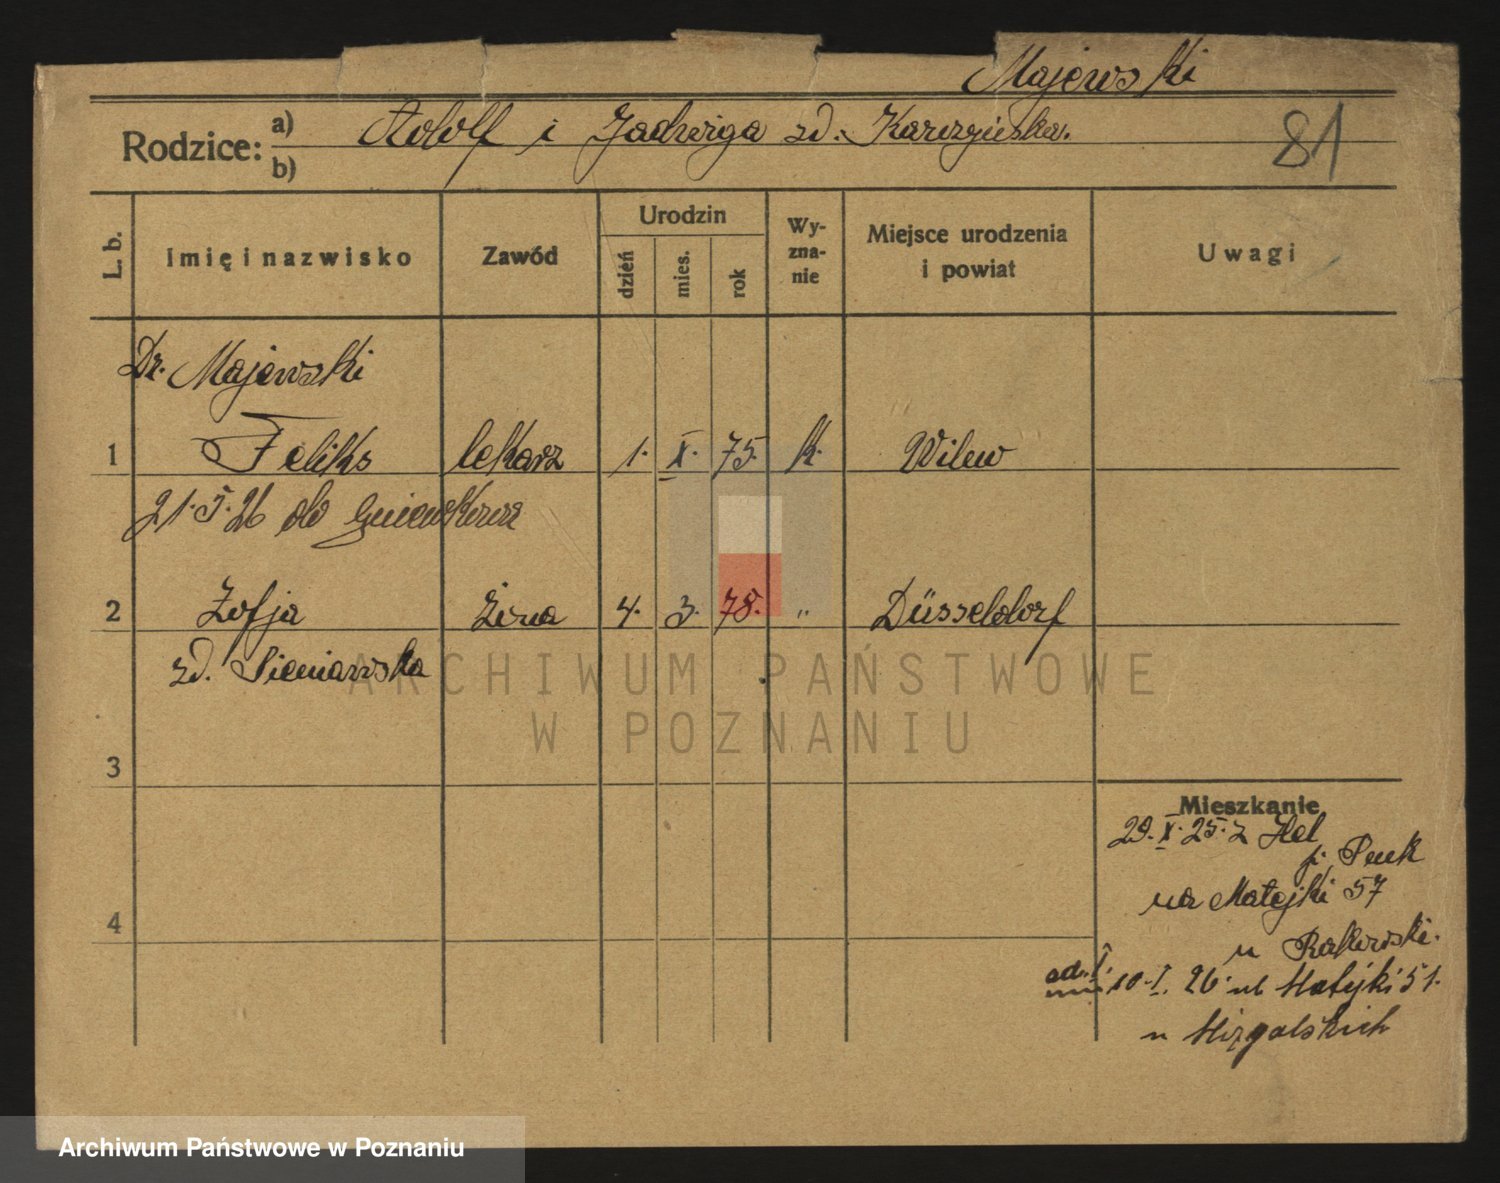 Majewski
Rodzice: a) Adolf i Jadwiga zd.
b)
81
L. b.
Imię i nazwisko
Zawód
Urodzin
dzień
mies.
rok
Wy-
zna-
nie
Miejsce urodzenia
i powiat
Uwagi
Dr. Majewski
1 Feliks lekarz 1. X. 75. k. Wilew
21.5.26 do Gniewkowa
2 Zofja żona 4. 3. 78. " Düsseldorf
zd. Sieniawska
ARCHIWUM PAŃSTWOWE
W POZNANIU
3
Mieszkanie
29. X. 25. z Hel
p. Puck
na Matejki 57
4
u Rakowski.
10. I. 26 ul Matejki 51.
u
Archiwum Państwowe w Poznaniu